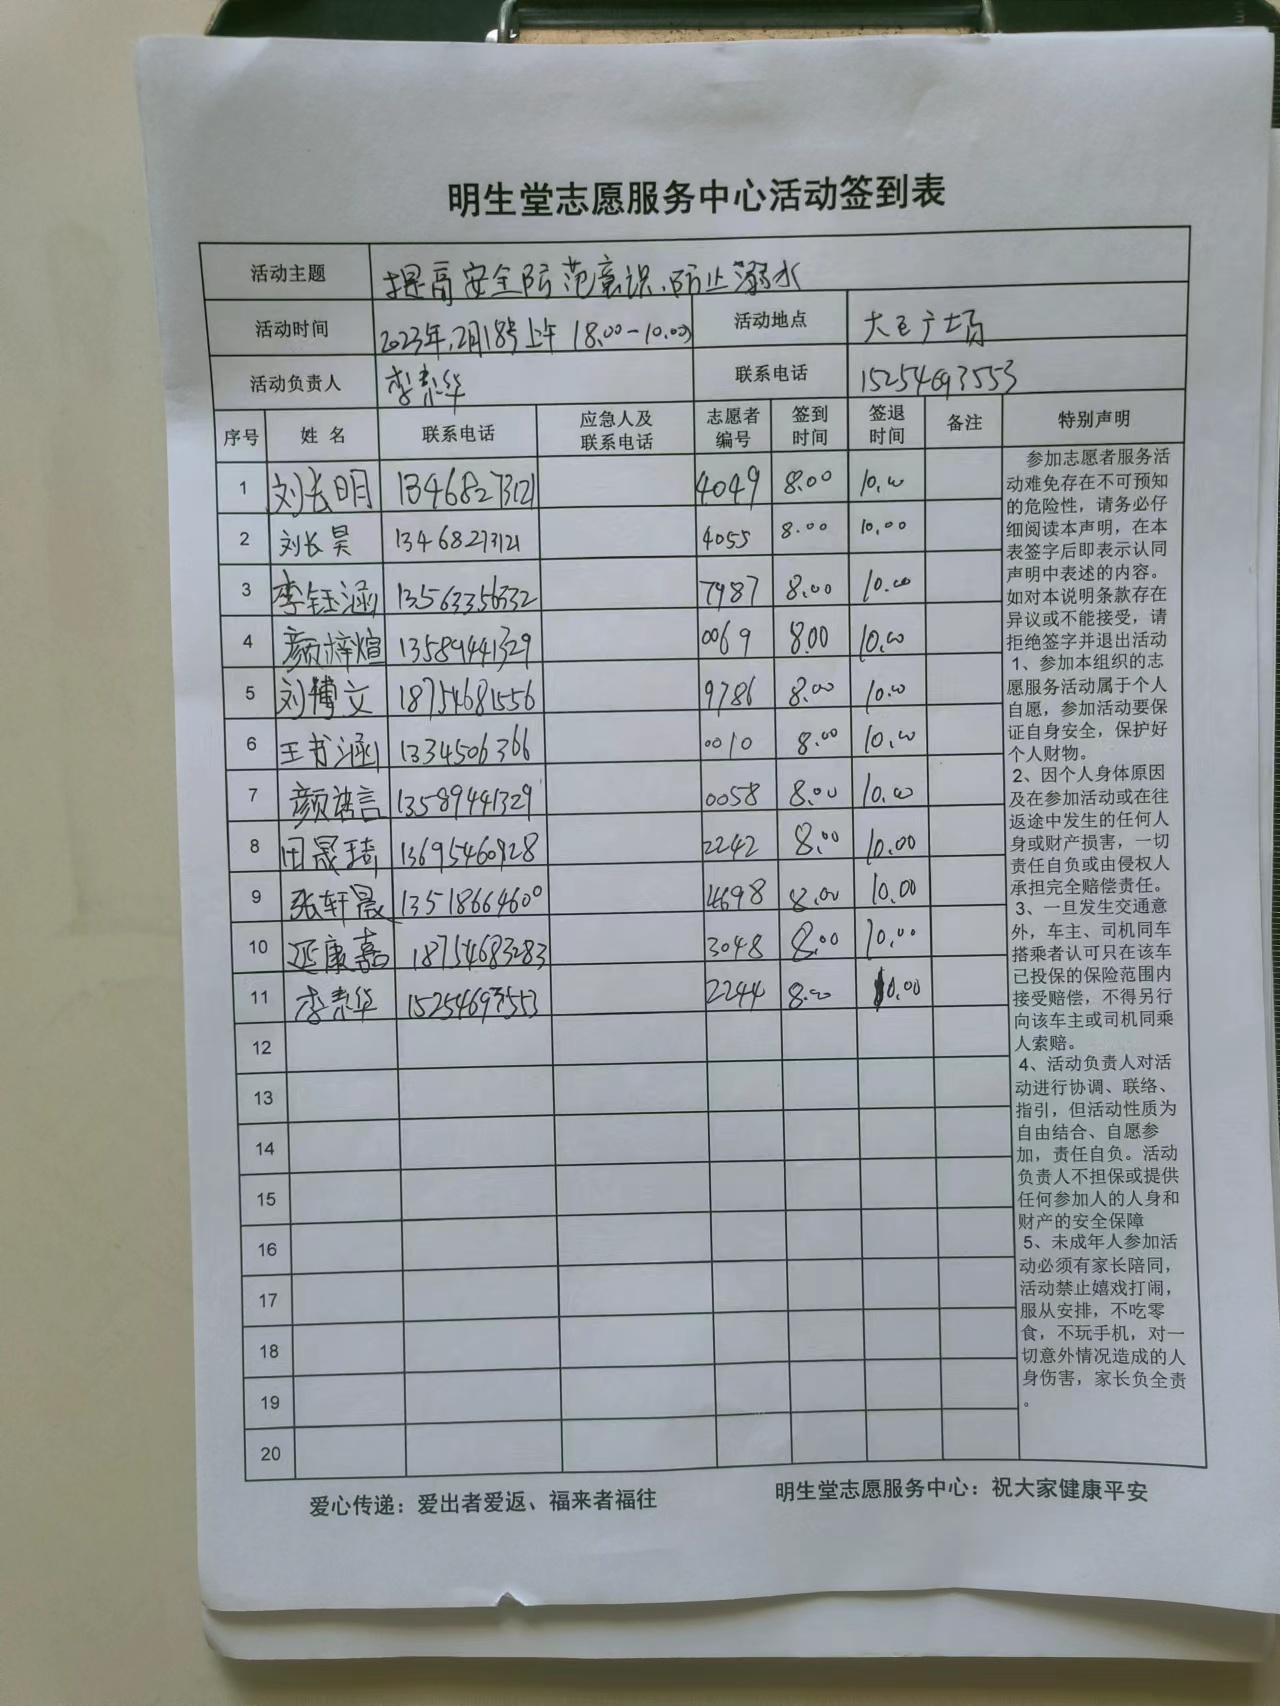 明生堂志愿服务中心活动签到表
活动主题 提高安全防范意识、防止溺水
活动时间 2023年,2月18号上午 18.00-10.00 活动地点 大王广场
活动负责人 李素华 联系电话 15254693553
序号 姓名 联系电话 应急人及联系电话 志愿者编号 签到时间 签退时间 备注 特别声明
1 刘长明 13468273121 4049 8.00 10.00
2 刘长昊 13468273121 4055 8.00 10.00
3 李钰涵 13563356332 7987 8.00 10.00
4 颜梓煊 13589441329 0069 8.00 10.00
5 刘博文 18754681556 9786 8.00 10.00
6 王书涵 1334506366 0010 8.00 10.00
7 颜诺言 13589441329 0058 8.00 10.00
8 田晟琦 13695460928 2242 8.00 10.00
9 张轩晟 13518664600 4698 8.00 10.00
10 延康嘉 18754683283 3048 8.00 10.00
11 李素华 15254693553 2244 8.00 10.00
12
13
14
15
16
17
18
19
20
参加志愿者服务活
动难免存在不可预知
的危险性，请务必仔
细阅读本声明，在本
表签字后即表示认同
声明中表述的内容。
如对本说明条款存在
异议或不能接受，请
拒绝签字并退出活动
1、参加本组织的志
愿服务活动属于个人
自愿，参加活动要保
证自身安全，保护好
个人财物。
2、因个人身体原因
及在参加活动或在往
返途中发生的任何人
身或财产损害，一切
责任自负或由侵权人
承担完全赔偿责任。
3、一旦发生交通意
外，车主、司机同车
搭乘者认可只在该车
已投保的保险范围内
接受赔偿，不得另行
向该车主或司机同乘
人索赔。
4、活动负责人对活
动进行协调、联络、
指引，但活动性质为
自由结合、自愿参
加，责任自负。活动
负责人不担保或提供
任何参加人的人身和
财产的安全保障
5、未成年人参加活
动必须有家长陪同，
活动禁止嬉戏打闹，
服从安排，不吃零
食，不玩手机，对一
切意外情况造成的人
身伤害，家长负全责
。
爱心传递：爱出者爱返、福来者福往 明生堂志愿服务中心：祝大家健康平安